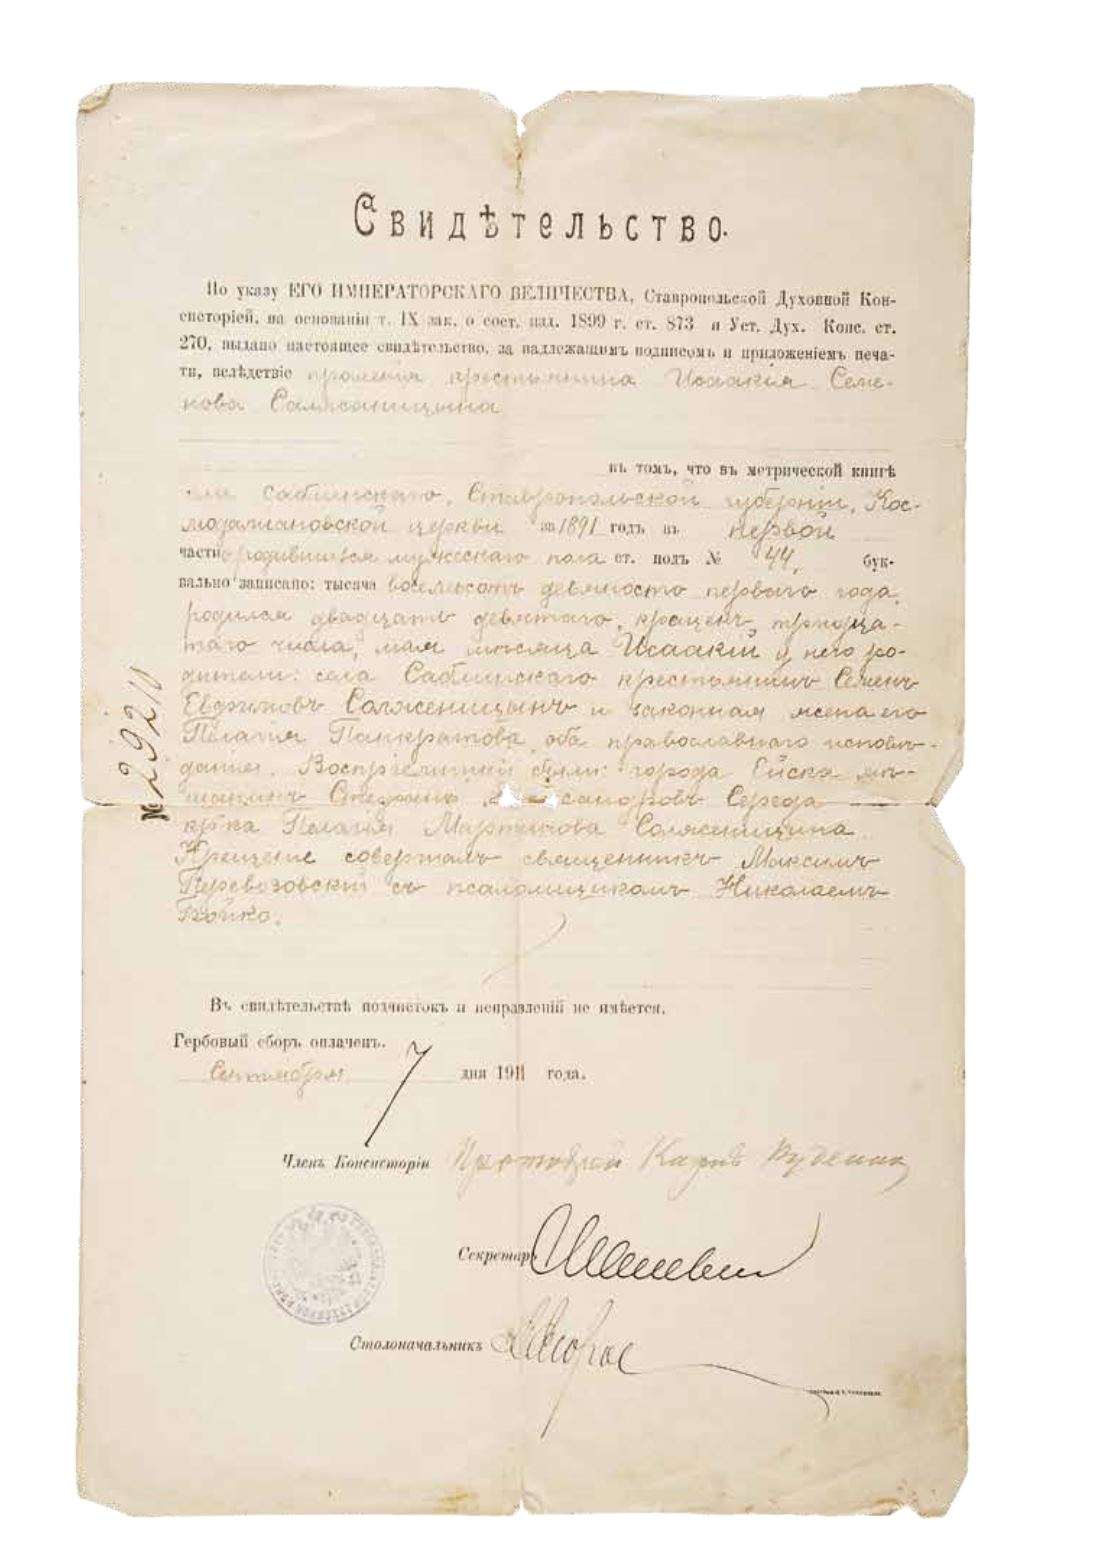 Свидѣтельство.
По указу ЕГО ИМПЕРАТОРСКАГО ВЕЛИЧЕСТВА, Ставропольской Духовной Кон-
систоріей, на основаніи т. IX зак. о сост. изд. 1899 г. ст. 873 и Уст. Дух. Конс. ст.
270, выдано настоящее свидѣтельство, за надлежащимъ подписомъ и приложеніемъ печа-
ти, вслѣдствіе прошенія крестьянина Исаакія Семе-
нова Солженицына
въ томъ, что въ метрической книгѣ
Саблинскаго, Ставропольской губерніи, Кос-
модаміановской церкви за 1891 годъ въ первой
части родившихся мужескаго пола ст. подъ № 44, бук-
вально записано: тысяча восемьсотъ девяносто перваго года,
родился двадцать девятаго, крещенъ тридца-
таго числа, мая мѣсяца Исаакій у него ро-
дители: села Саблинскаго крестьянинъ Семенъ
Евфимовъ Солженицынъ и законная жена его
Пелагія Панкратова оба православнаго исповѣ-
данія. Воспріемники были: города Ейска мѣ-
щанинъ Стефанъ Середа
кр-ка Пелагія Мартинова Солженицина.
Крещеніе совершалъ священникъ Максимъ
Перевозовскій съ псаломщикомъ Николаемъ
Бойко.
№ 29210
Въ свидѣтельствѣ подчистокъ и исправленій не имѣется.
Гербовый сборъ оплаченъ.
Сентября 7 дня 1911 года.
Членъ Консисторіи Протоіерей
Секретарь
Столоначальникъ